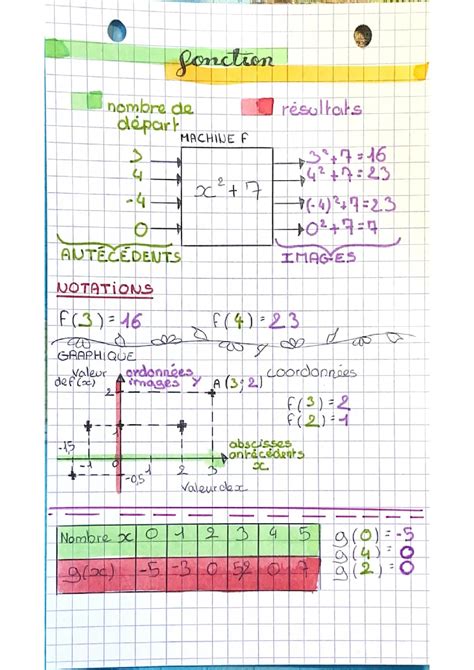 fonction
nombre de départ
résultats
MACHINE F
3
4
-4
0
x²+7
3²+7=16
4²+7=23
(-4)²+7=23
0²+7=7
ANTÉCÉDENTS
IMAGES
NOTATIONS
f(3)=16 f(4)=23
GRAPHIQUE
valeur de f(x)
ordonnées images y
A (3;2) coordonnées
f(3)=2
f(2)=1
2
1
-1,5 -1 0 1 2 3
-0,5
abscisses antécédents x
Valeur de x
Nombre x 0 1 2 3 4 5
g(x) -5 -3 0 5,2 0 7
g(0)=-5
g(4)=0
g(2)=0